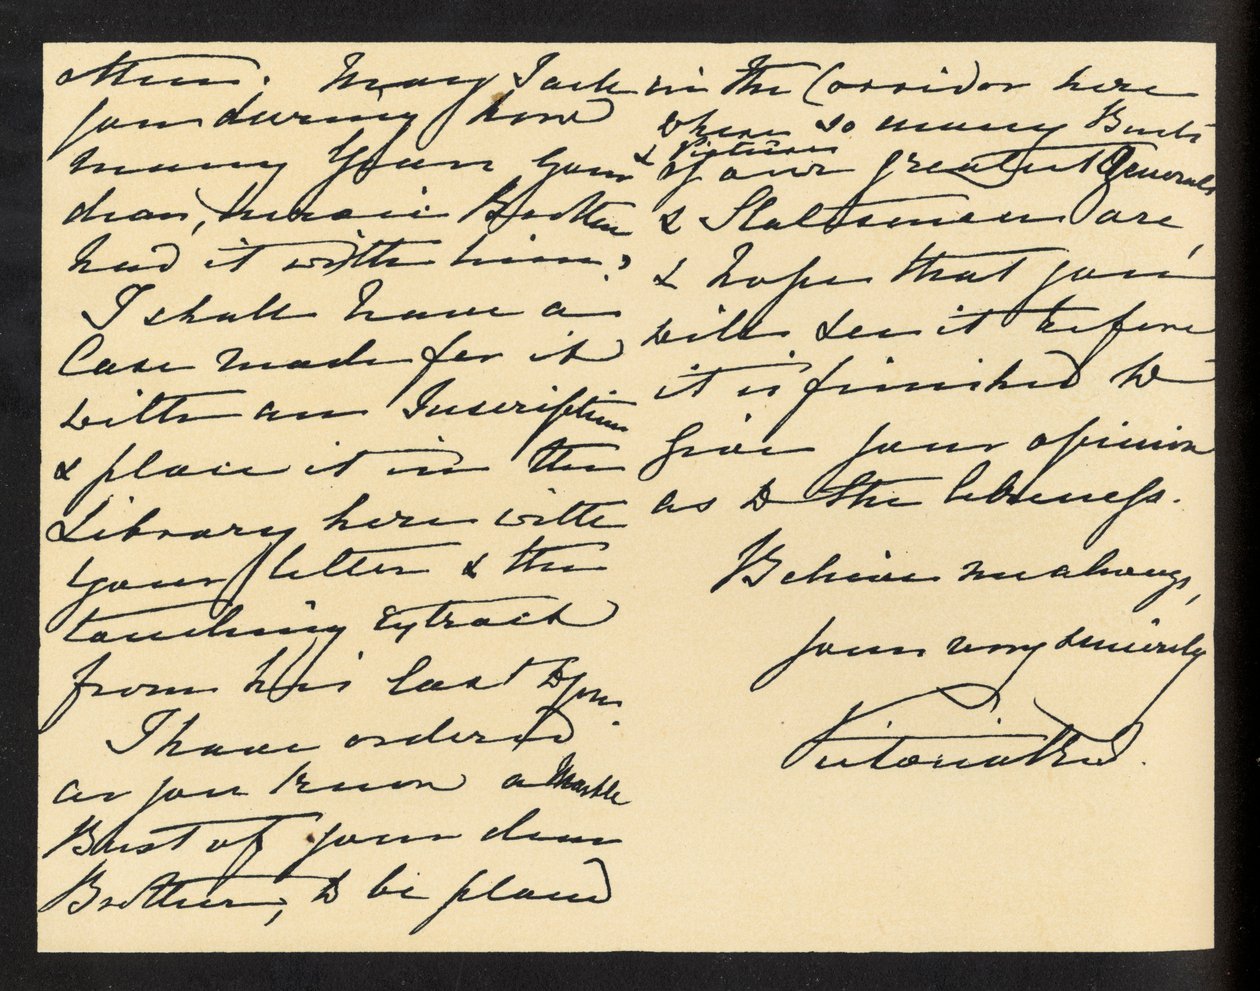 others. May I ask
you during how
many years your
dear, heroic Brother
had it with him?
I shall have a
Case made for it
with an Inscription
& place it in the
Library here with
your letter & the
touching Extract
from his last to you.
I have ordered
as you know a Marble
Bust of your dear
Brother, to be placed
in the Corridor here
where so many Busts
& Pictures
of our greatest Generals
& Statesmen are,
& hope that you
will see it before
it is finished to
give your opinion
as to the likeness.
Believe me always,
yours very sincerely
Victoria R I.